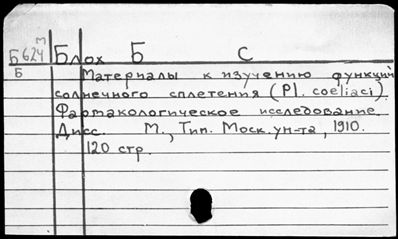 Б624т Блох Б С
Б Материалы к изучению функций
солнечного сплетения (Pl. coeliaci)
Фармакологическое исследование.
Дисс. М., Тип. Моск. ун-та, 1910.
120 стр.